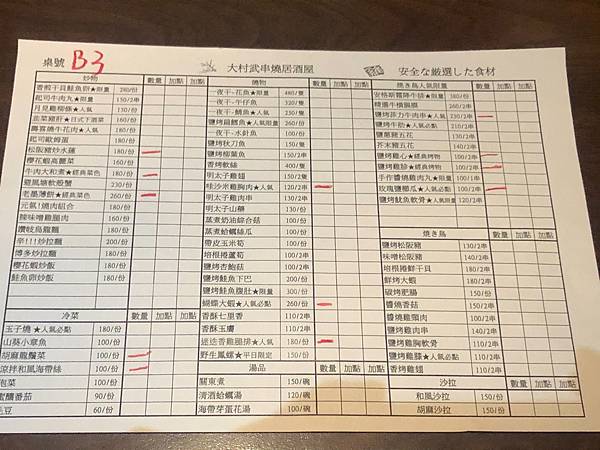 桌號 B3
大村武串燒居酒屋
安全な厳選した食材
炒物 數量 加點 加點
香煎干貝鮭魚卵★限量 280/份
起司牛肉丸★限量 150/2串
月見雞柳條★人氣 130/份
韭菜豬肝★日式下酒菜 160/份
壽喜燒牛花肉★人氣 180/份
起司歐姆蛋 180/份
松阪豬炒水蓮 180/份
櫻花蝦高麗菜 160/份
牛肉大和煮★經典菜色 230/份
避風塘軟殼蟹 230/份
老墨薄餅★經典菜色 260/份
元氣!燒肉組合 180/份
辣味噌雞腿肉 160/份
讚岐烏龍麵 180/份
辛!!!炒拉麵 200/份
博多炒拉麵 180/份
櫻花蝦炒飯 180/份
鮭魚卵炒飯 180/份
冷菜 數量 加點 加點
玉子燒★人氣必點 180/份
山葵小章魚 100/份
胡麻龍鬚菜 100/份
涼拌和風海帶絲 100/份
泡菜 100/份
蜜釀番茄 90/份
毛豆 60/份
燒物 數量 加點 加點
一夜干-花魚★限量 480/隻
一夜干-午仔魚 320/隻
一夜干-鯖魚★人氣 300/隻
鹽烤扁鱈魚★人氣限量 360/份
一夜干-水針魚 100/份
鹽烤秋刀魚 150/隻
鹽烤柳葉魚 150/份
香烤軟絲 400/隻
明太子雞翅 150/2隻
哇沙米雞胸肉★人氣 120/2串
明太子雞肉串 130/2串
明太子山藥 130/份
蒸煮奶油綜合菇 100/份
蒸煮蛤蠣絲瓜 100/份
帶皮玉米筍 100/份
培根捲蘆筍 100/2串
鹽烤杏鮑菇 100/份
鹽烤鮭魚下巴 200/份
鹽烤鮭魚腹肚★限量 300/份
蝴蝶大蝦★人氣必點 260/份
香酥七里香 110/2串
香酥玉脯 110/2串
迷迭香雞腿排★人氣 180/份
野生鳳螺★平日限定 150/份
湯品 數量 加點 加點
關東煮 150/碗
清酒蛤蠣湯 120/碗
海帶芽蛋花湯 100/碗
燒き鳥人氣限量 數量 加點 加點
安格斯霜降牛排★限量 330/2串
精選牛橫膈膜 260/2串
鹽烤菲力牛肉串★人氣 230/2串
鹽烤牛肋★人氣必點 210/2串
鹽蔥豬五花 130/2串
芥末豬五花 140/2串
鹽烤雞心★經典烤物 100/2串
鹽烤雞胗★經典烤物 100/2串
手作醬燒雞肉丸★限量 100/1串
玫瑰鹽櫛瓜★人氣必點 110/2串
鹽烤魷魚軟骨★人氣限量 120/2串
燒き鳥 數量 加點 加點
鹽烤松阪豬 130/2串
味噌松阪豬 140/2串
培根捲鮮干貝 180/2串
鮮烤大蝦 180/2串
碳烤肥腸 150/份
醬燒香菇 150/2串
醬燒雞頸肉 100/2串
鹽烤雞肉串 110/2串
鹽烤雞胸軟骨 110/2串
鹽烤雞膝★人氣必點 110/2串
香烤雞翅 110/2串
沙拉 數量 加點 加點
和風沙拉 150/份
胡麻沙拉 150/份